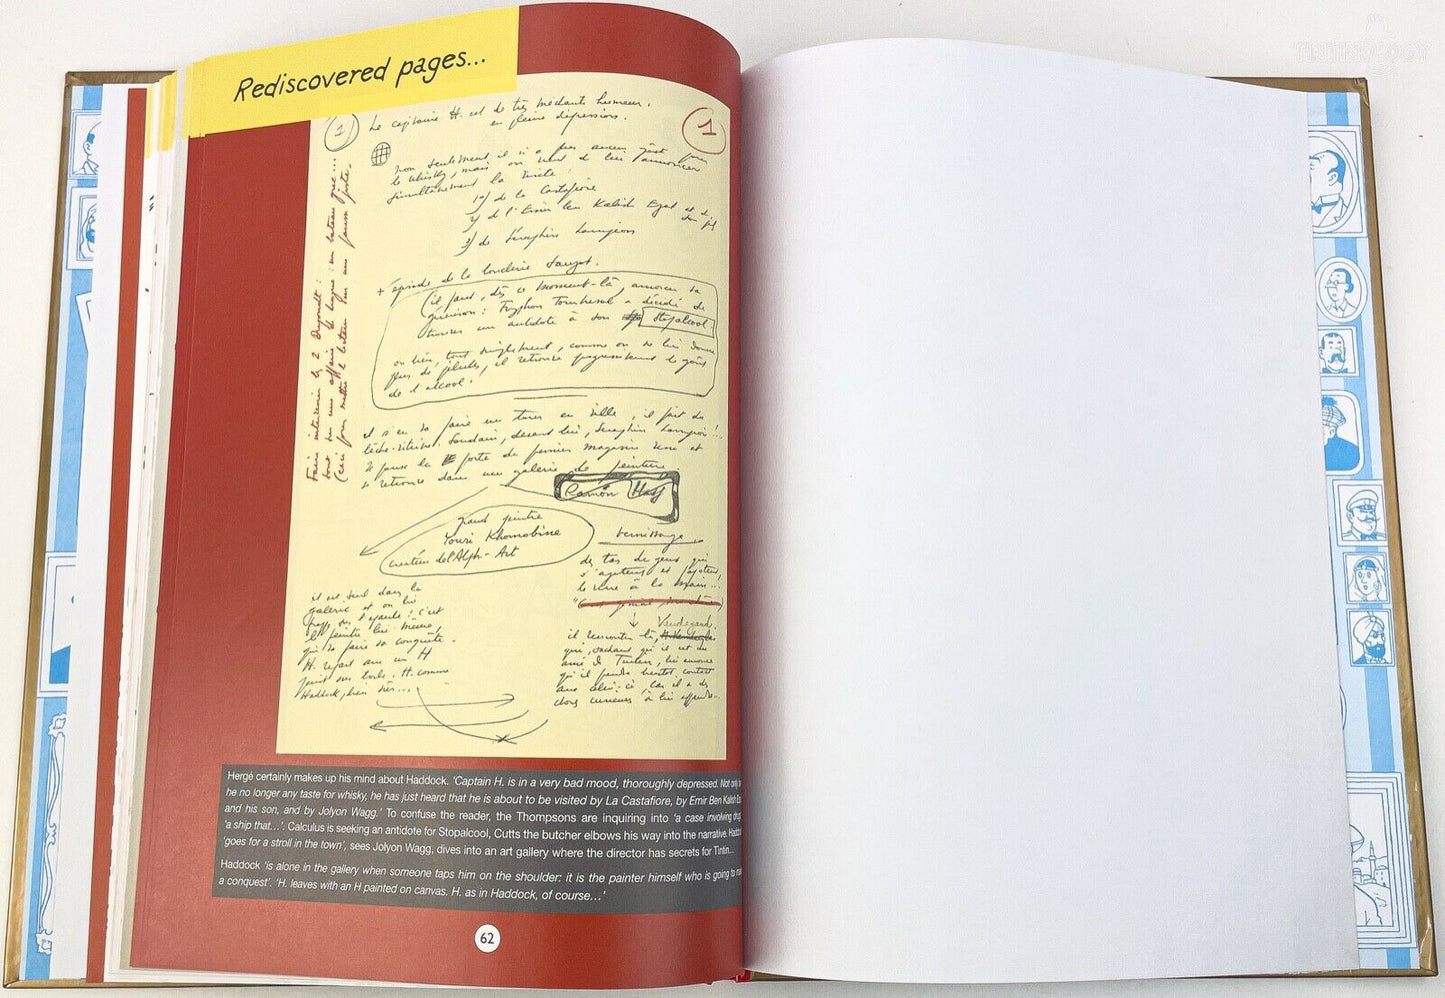 TINTINOLOGY
Rediscovered pages...
1
1
Le capitaine H. est de très méchante humeur,
en pleine dépression.
Non seulement il n'a plus aucun goût pour
le whisky, mais on vient d lui annoncer
simultanément la visite:
1°) de la Castafiore
2) de l'Emir ben Kalish Ezab et de son fils
3) de Séraphin Lampion
+ épisode de la boucherie Sanzot.
(il faut, dès ce moment-là, amorcer sa
guérison: Tryphon Tournesol a décidé de
trouver un antidote à son Stopalcool
ou bien, tout simplement, comme on ne lui donne
plus de pilules, il retrouve progressivement le goût
de l'alcool.
il s'en va faire un tour en ville, il fait du
lèche-vitrine, Soudain, devant lui, Séraphin Lampion!...
Il pousse la porte du premier magasin venu et
se retrouve dans une galerie de peinture
Ramón Hasj
grand peintre
Youri Khomobine
créateur de l'Alph-Art
vernissage
des tas de gens qui
s'agitent et papotent,
le verre à la main...
il est seul dans la
galerie et on lui
frappe sur l'épaule: c'est
le peintre lui-même
qui va faire sa conquête.
H. repart avec un H
peint sur toile. H. comme
Haddock, bien sûr...
Vandegard.
il rencontre là,
qui, sachant qu'il est un
ami de Tintin, lui annonce
qu'il prendra bientôt contact
avec celui-ci, car il a des
choses curieuses à lui apprendre...
Faire intervenir les 2 Dupondt:
sont sur une affaire de drogue: un bateau que...
(ceci pour mettre le lecteur sur une fausse piste.
Hergé certainly makes up his mind about Haddock. 'Captain H. is in a very bad mood, thoroughly depressed. Not only
he no longer any taste for whisky, he has just heard that he is about to be visited by La Castafiore, by Emir Ben Kalish
and his son, and by Jolyon Wagg.' To confuse the reader, the Thompsons are inquiring into 'a case involving
'a ship that...'. Calculus is seeking an antidote for Stopalcool, Cutts the butcher elbows his way into the narrative.
'goes for a stroll in the town', sees Jolyon Wagg, dives into an art gallery where the director has secrets for Tintin...
Haddock 'is alone in the gallery when someone taps him on the shoulder: it is the painter himself who is going to
a conquest'. 'H. leaves with an H painted on canvas. H. as in Haddock, of course...'
62